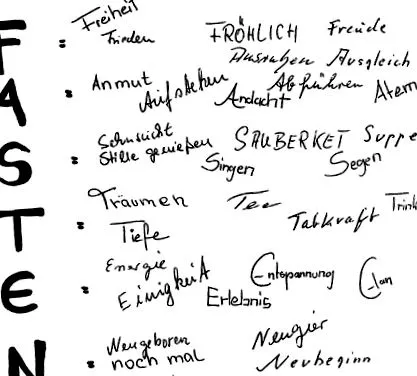 F = Freiheit Frieden FRÖHLICH Freude
Ausruhen Ausgleich
A = Anmut Aufstehen Andacht Abführen Atem
S = Sehnsucht Stille genießen SAUBERKEIT Suppe
Singen Segen
T = Träumen Tee Trink
Tiefe Tatkraft
E = Energie Einigkeit Entspannung Elan
Erlebnis
N = Neugeboren Neugier
noch mal Neubeginn